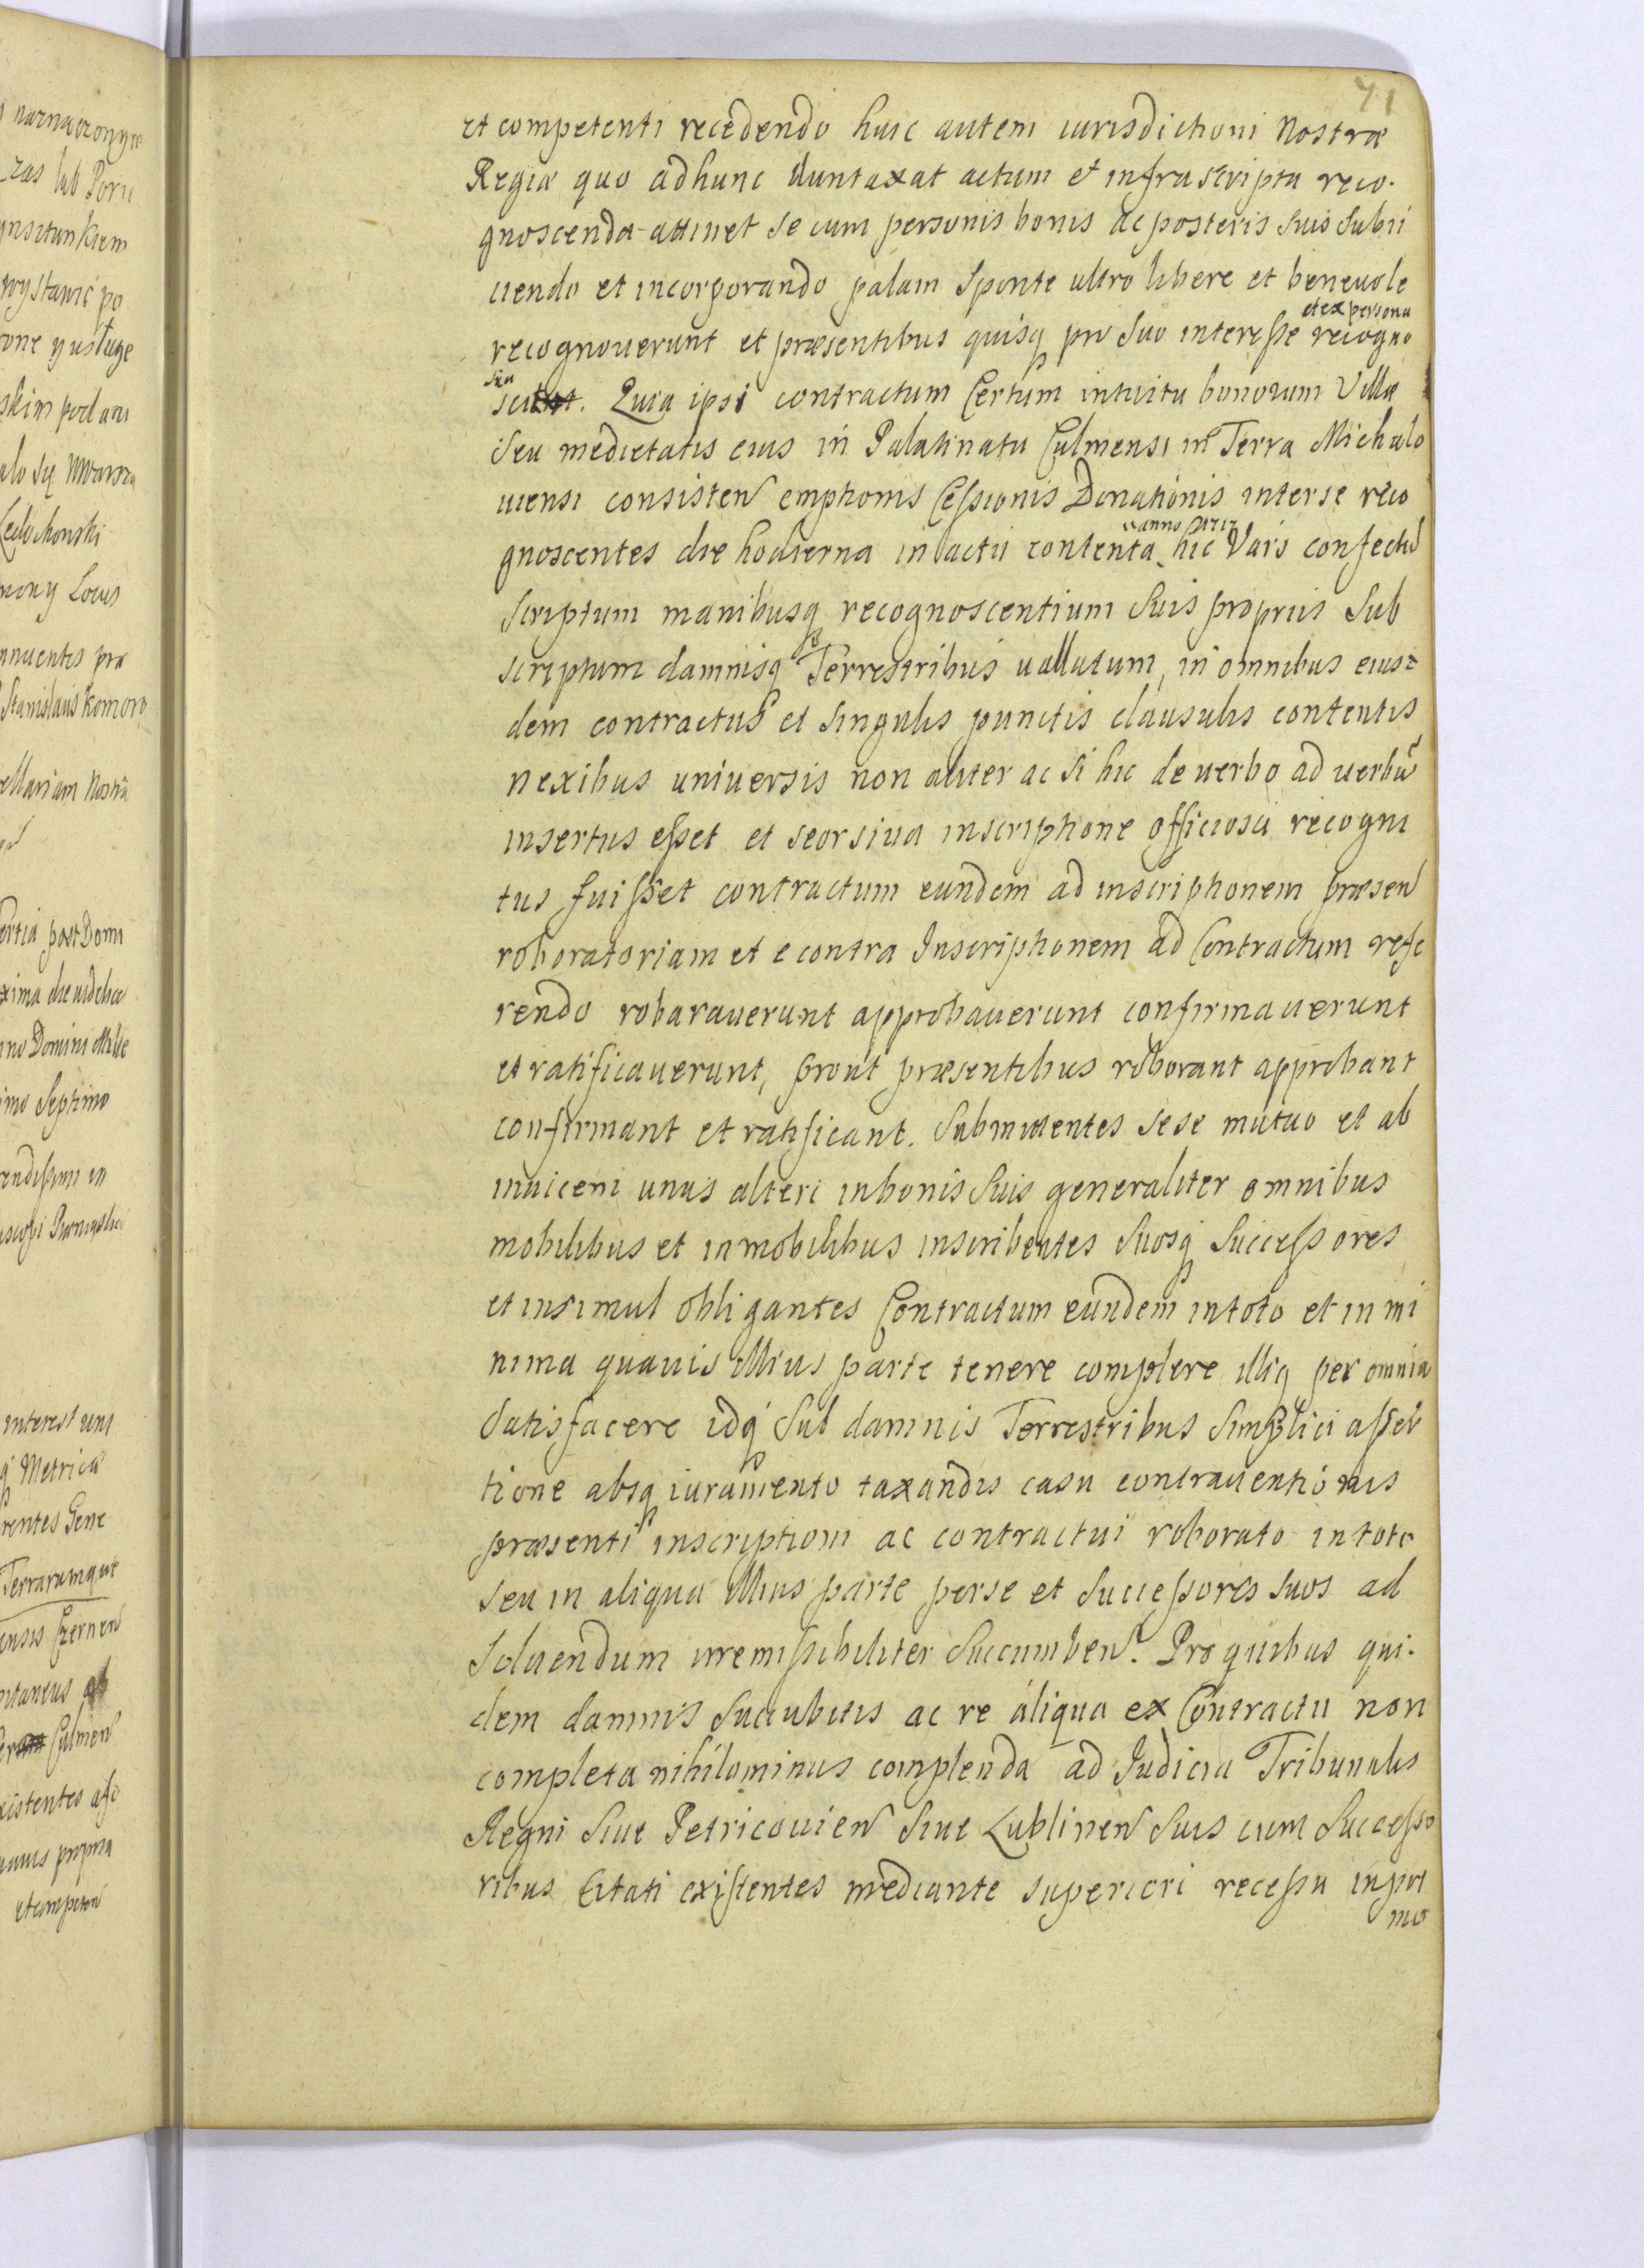 71
et competenti recedendo huic autem iurisdictioni Nostræ
Regiæ quo adhunc duntaxat actum et infrascripta reco-
gnoscenda attinet se cum personis bonis ac posteris suis subii
ciendo et incorporando palam sponte ultro libere et beneuole
et ex persona
recognouerunt et præsentibus quisq pro suo interesse recogno
scunt. Quia ipsi contractum Certum intuitu bonorum Villæ
seu medietatis eius in Palatinatu Culmensi in Terra Michalo
uiensi consisten emptionis Cessionis Donationis interse reco
anno
gnoscentes die hodierna in actu contenta hic Vars confectu
scriptum manibusq recognoscentium suis propriis sub
scriptum damnisq Terrestribus uallatum, in omnibus eius=
dem contractus et singulis punctis clausulis contentis
nexibus uniuersis non aliter ac si hic de uerbo ad uerbũ
insertus esset et seorsiua inscriptione officiosa recogni
tus fuisset contractum eundem ad inscriptionem præsen
roboratoriam et e contra Inscriptionem ad Contractum refe
rendo robarauerunt approbauerunt confirmauerunt
et ratificauerunt, prout præsentibus roborant approbant
confirmant et ratificant. Submittentes sese mutuo et ab
inuicem unus alteri inbonis suis generaliter omnibus
mobilibus et inmobilibus inscribentes suosq successores
et insimul obligantes Contractum eundem intoto et in mi
nima quauis illius parte tenere complere illiq per omnia
satisfacere idq sub damnis Terrestribus simplici asser
tione absq iuramento taxandis casu contrauentionis
præsenti inscriptioni ac contractui roborato intoto
seu in aliqua illius parte perse et successores suos ad
soluendum irremissibiliter succumben. Pro quibus qui-
dem damnis succubitis ac re aliqua ex Contractu non
completa nihilominus complenda ad Judicia Tribunalis
Regni siue Petricouien siue Lublinen suis cum successo
ribus Citati existentes mediante superiori recessu inpri
mo